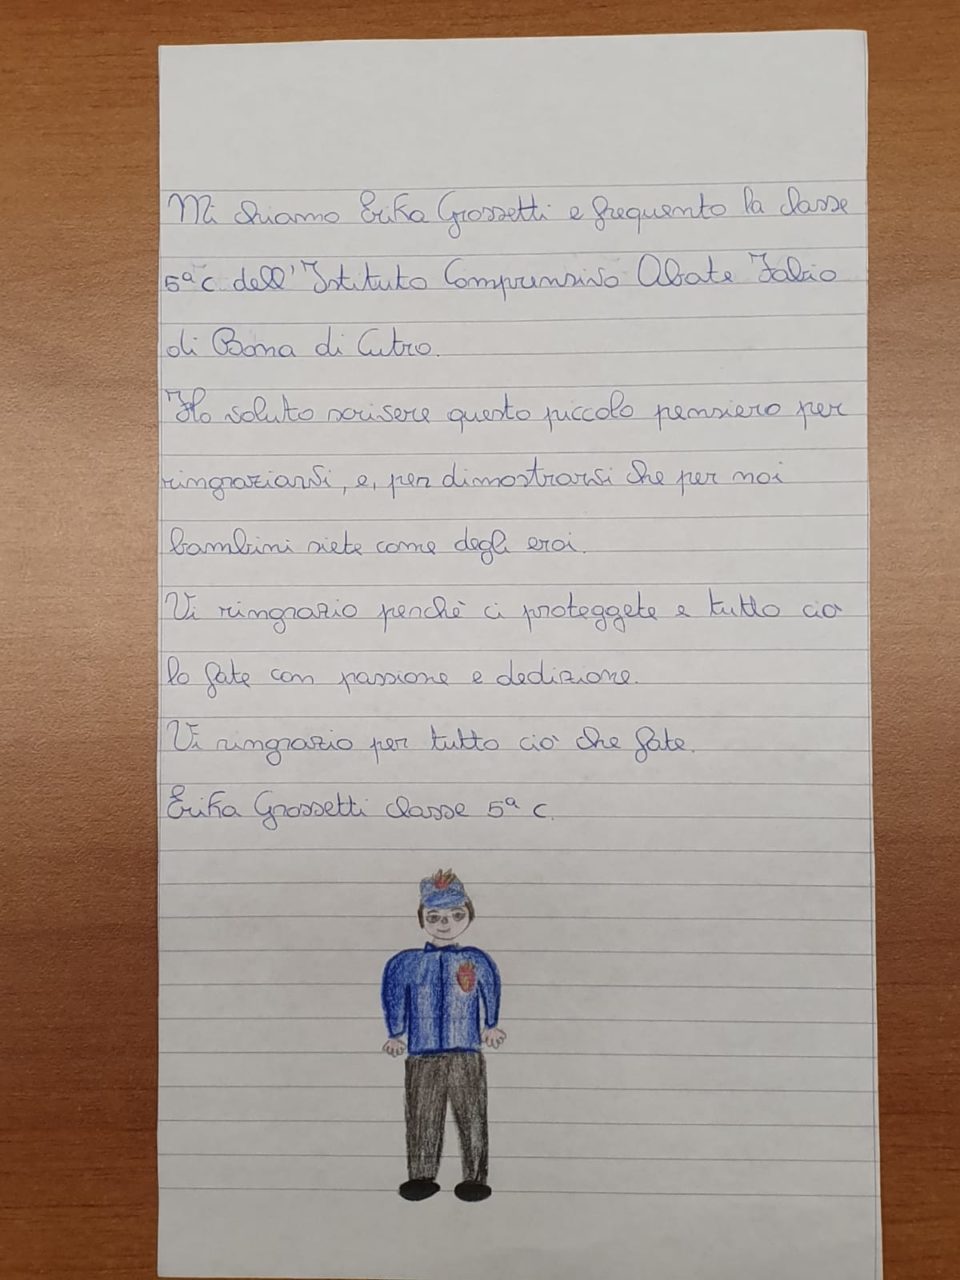 Mi chiamo Erika Grossetti e frequento la classe
5ª C dell'Istituto Comprensivo Abate Fabio
di Bona di Cutro.
Ho voluto scrivere questo piccolo pensiero per
ringraziarvi, e, per dimostrarvi che per noi
bambini siete come degli eroi.
Vi ringrazio perchè ci proteggete e tutto ciò
lo fate con passione e dedizione.
Vi ringrazio per tutto ciò che fate.
Erika Grossetti classe 5ª C.